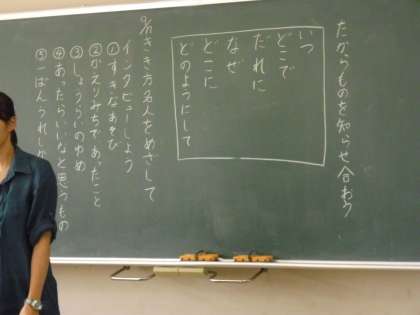 たからものを知らせ合おう
いつ
どこで
だれに
なぜ
どこに
どのようにして
9/1 きき方名人をめざして
インタビューしよう
①すきなあそび
②かえりみちであったこと
③しょうらいのゆめ
④あったらいいなと思うもの
⑤ばんうれしか